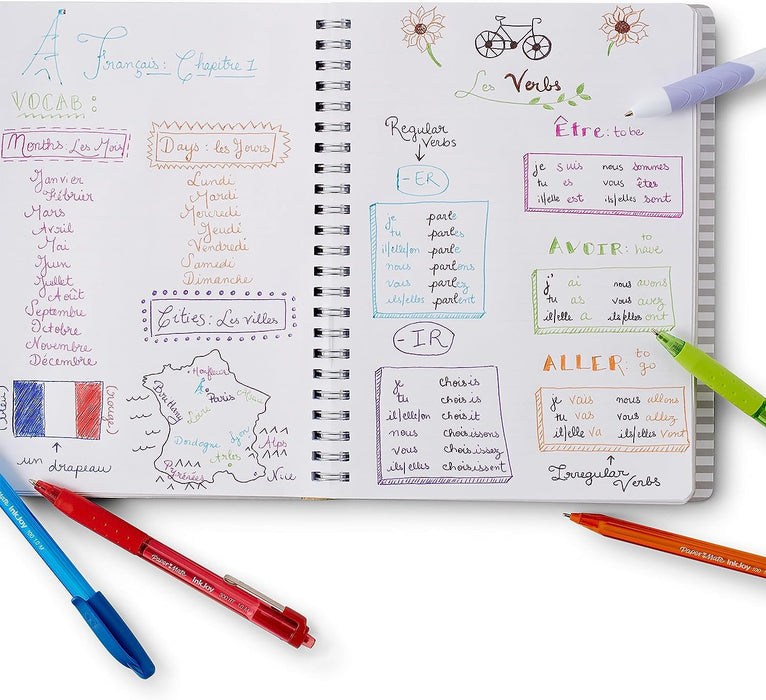 Français: Chapitre 1
VOCAB:
Months: Les Mois
Janvier
Février
Mars
Avril
Mai
Juin
Juillet
Août
Septembre
Octobre
Novembre
Décembre
Days: les Jours
Lundi
Mardi
Mercredi
Jeudi
Vendredi
Samedi
Dimanche
Cities: Les Villes
Honfleur
Paris
Brittany
Loire
Dordogne
Lyon
Alps
Arles
Pyrénées
Nice
(bleu)
(Rouge)
un drapeau
Les Verbs
Regular
Verbs
-ER
je parle
tu parles
il/elle/on parle
nous parlons
vous parlez
ils/elles parlent
-IR
je choisis
tu choisis
il/elle/on choisit
nous choisissons
vous choisissez
ils/elles choisissent
Être: to be
je suis nous sommes
tu es vous êtes
il/elle est ils/elles sont
AVOIR: to have
j' ai nous avons
tu as vous avez
il/elle a ils/elles ont
ALLER: to go
je vais nous allons
tu vas vous allez
il/elle va ils/elles vont
Irregular
Verbs
Paper Mate InkJoy 100 1.0 M
Paper Mate InkJoy 300 RT 1.0 M
Paper Mate InkJoy 100